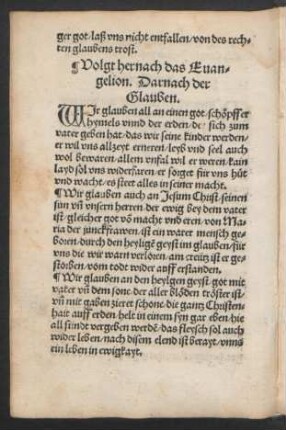 ger got/ laß vns nicht entfallen/ von des rech-
ten glaubens trost.
¶Volgt hernach das Euan-
gelion. Darnach der
Glauben.
WIr glauben all an einen got/ schöpffer
hymels vnnd der erden/ d᷑ sich zum
vater geben hat/ das wir seine kinder werden/
er wil vns allzeyt erneren/ leyb vnd seel auch
wol bewaren/ allem vnfal wil er weren/ kain
layd sol vns widerfaren/ er sorget für vns/ hüt
vnd wacht/ es steet alles in seiner macht.
¶Wir glauben auch an Jesum Christ/ seinen
sun vñ vnsern herren/ der ewig bey dem vater
ist/ gleicher got võ macht vnd eren/ von Ma-
ria der junckfrawen/ ist ein warer mensch ge-
boren/ durch den heylige geyst im glauben/ für
vns die wir warn verloren/ am creütz ist er ge-
storben/ vom todt wider auff erstanden.
¶Wir glauben an den heylgen geyst/ got mit
vater vñ dem sone/ der aller blöden tröster ist/
vñ mit gaben zieret schone/ die gantz Christen-
hait auff erden/ helt in einem syn gar eben/ hie
all sünd vergeben werdẽ/ das fleysch sol auch
wider leben/ nach disem elend ist berayt/ vnns
ein leben in ewigkayt.